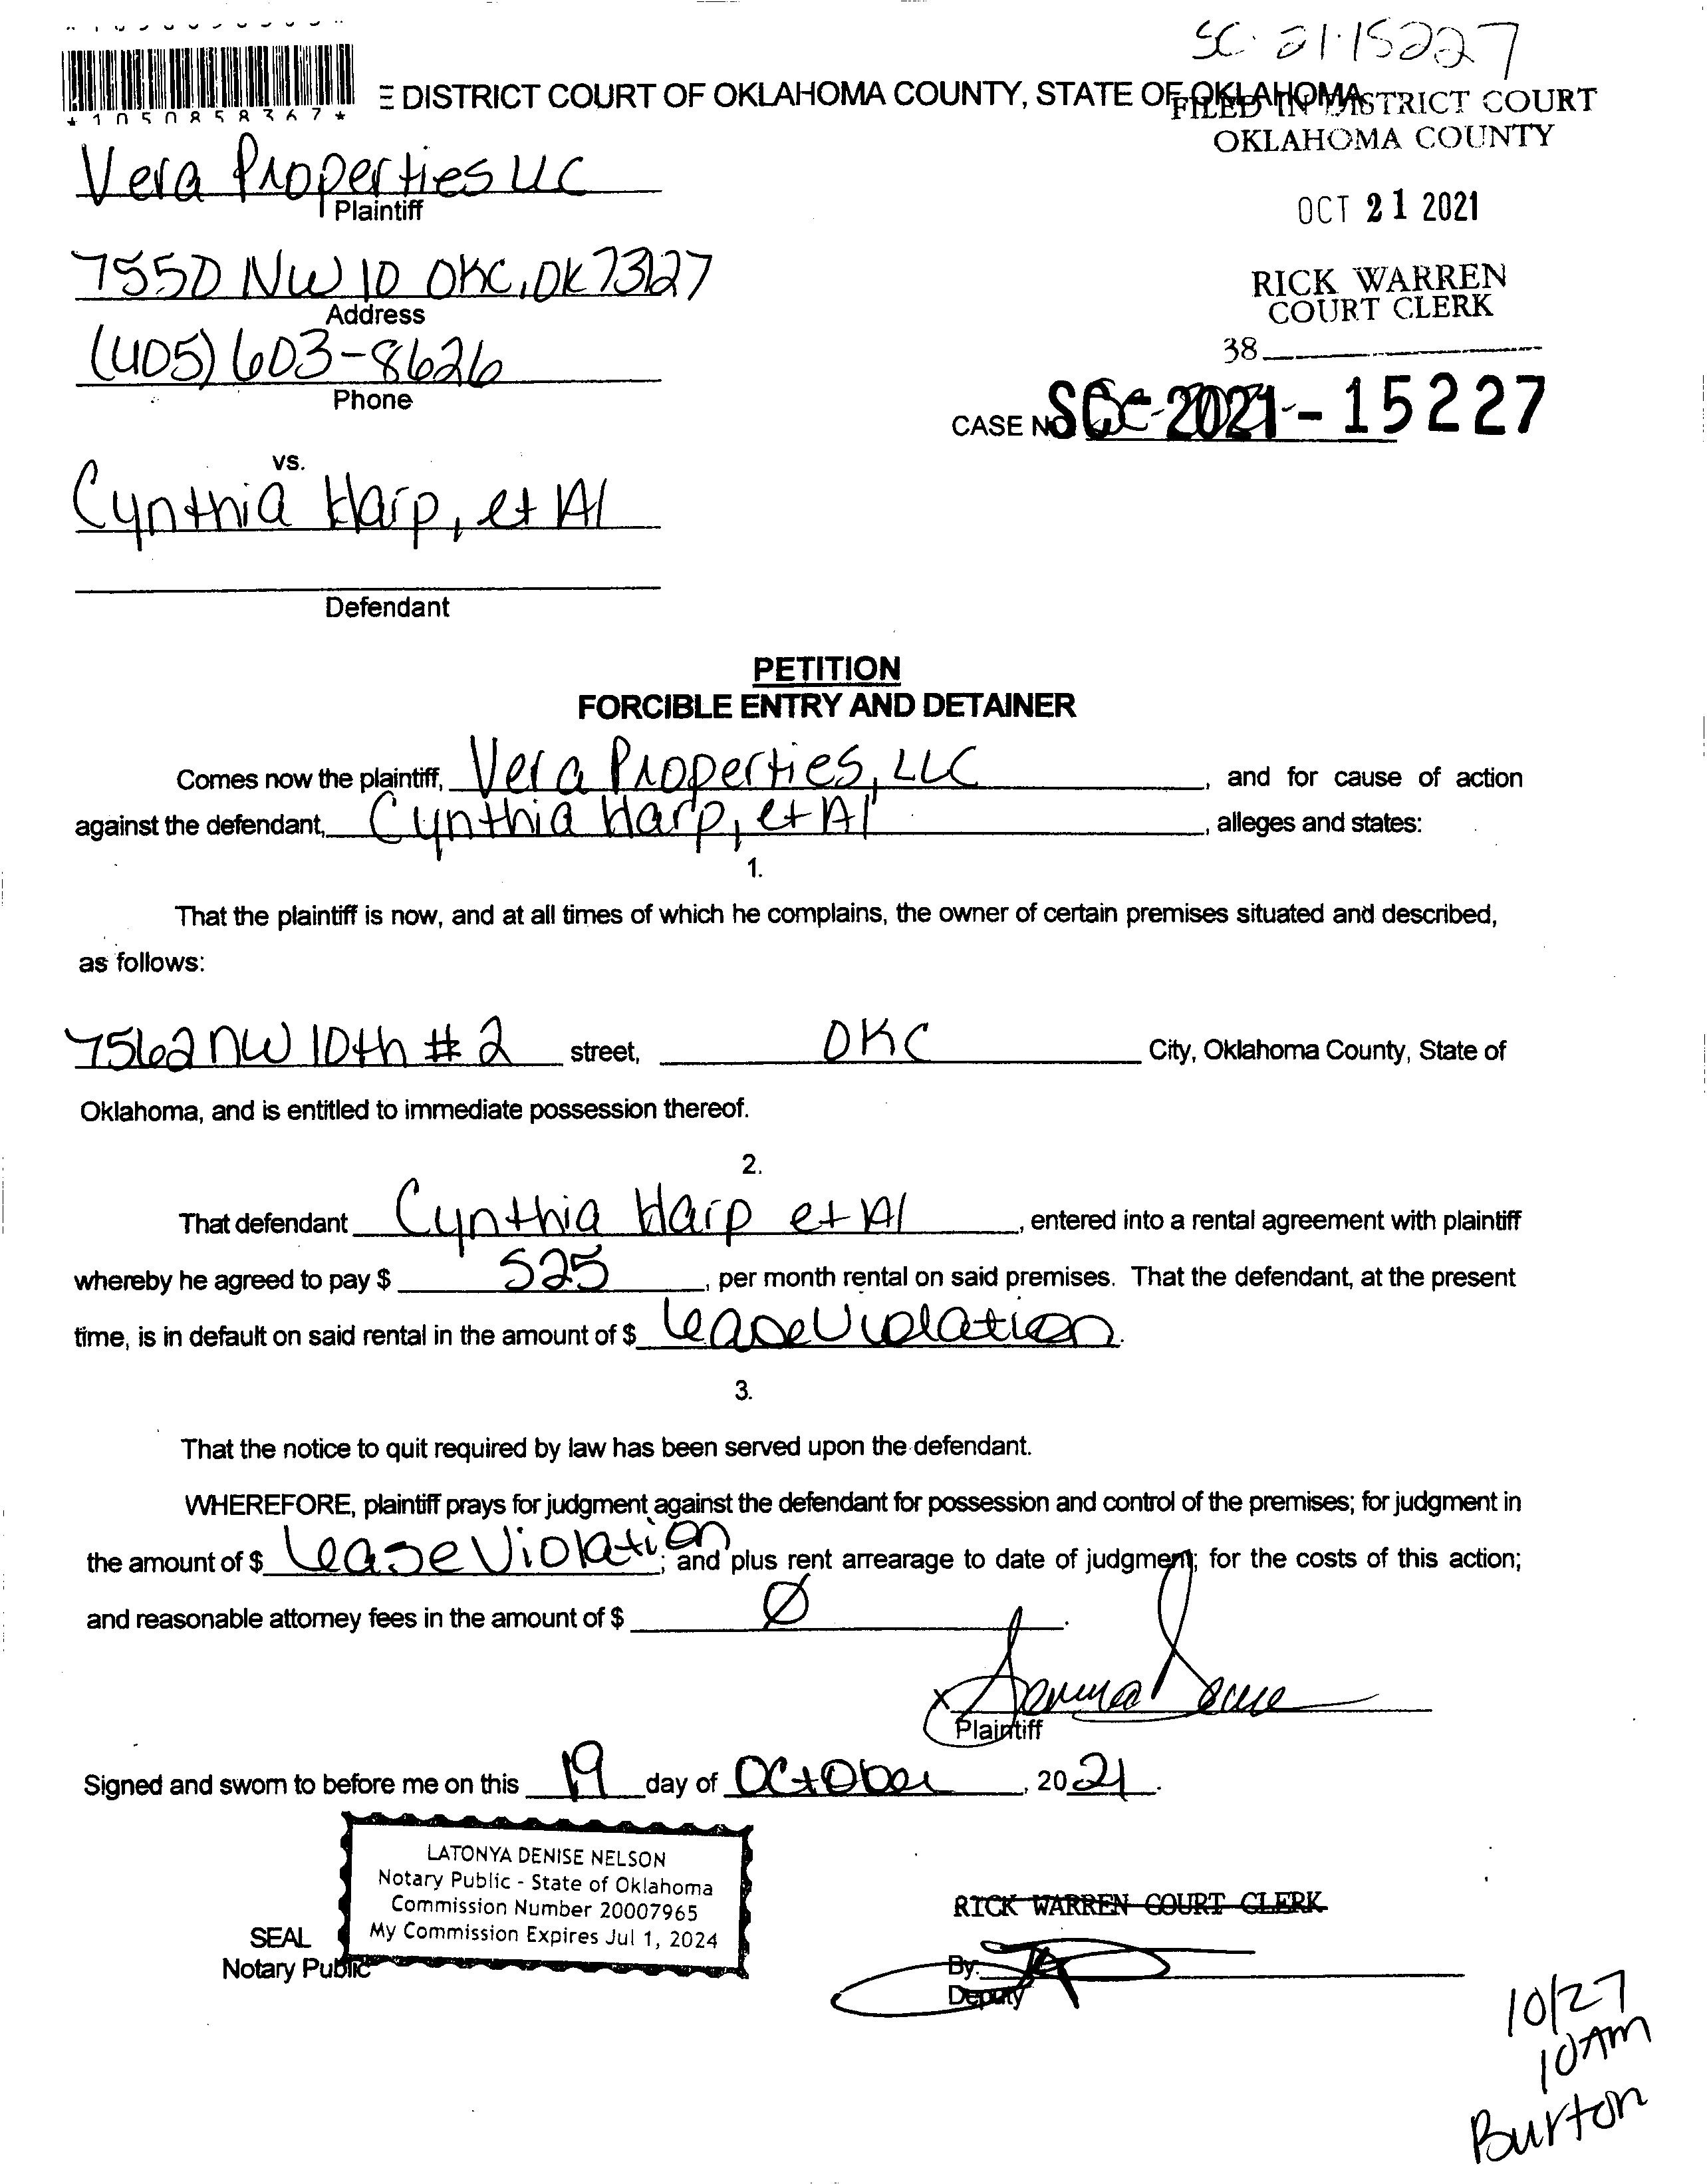 SC-21-15227
*1050858367*
E DISTRICT COURT OF OKLAHOMA COUNTY, STATE OF OKLAHOMA
FILED IN DISTRICT COURT
OKLAHOMA COUNTY
Vera Properties LLC
Plaintiff
OCT 21 2021
7550 NW 10 OKC, OK 73127
Address
RICK WARREN
COURT CLERK
(405) 603-8626
Phone
38
CASE NO. SC-2021-15227
vs.
Cynthia Harp, et Al
Defendant
PETITION
FORCIBLE ENTRY AND DETAINER
Comes now the plaintiff, Vera Properties, LLC, and for cause of action
against the defendant, Cynthia Harp, et Al, alleges and states:
1.
That the plaintiff is now, and at all times of which he complains, the owner of certain premises situated and described,
as follows:
7562 NW 10th # 2 street, OKC City, Oklahoma County, State of
Oklahoma, and is entitled to immediate possession thereof.
2.
That defendant Cynthia Harp et Al, entered into a rental agreement with plaintiff
whereby he agreed to pay $ 525, per month rental on said premises. That the defendant, at the present
time, is in default on said rental in the amount of $ Lease Violation.
3.
That the notice to quit required by law has been served upon the defendant.
WHEREFORE, plaintiff prays for judgment against the defendant for possession and control of the premises; for judgment in
the amount of $ Lease Violation; and plus rent arrearage to date of judgment; for the costs of this action;
and reasonable attorney fees in the amount of $ Ø.
X
Plaintiff
Signed and sworn to before me on this 19 day of October, 2021.
LATONYA DENISE NELSON
Notary Public - State of Oklahoma
Commission Number 20007965
My Commission Expires Jul 1, 2024
SEAL
Notary Public
RICK WARREN COURT CLERK
By:
Deputy
10/27
10AM
Burton